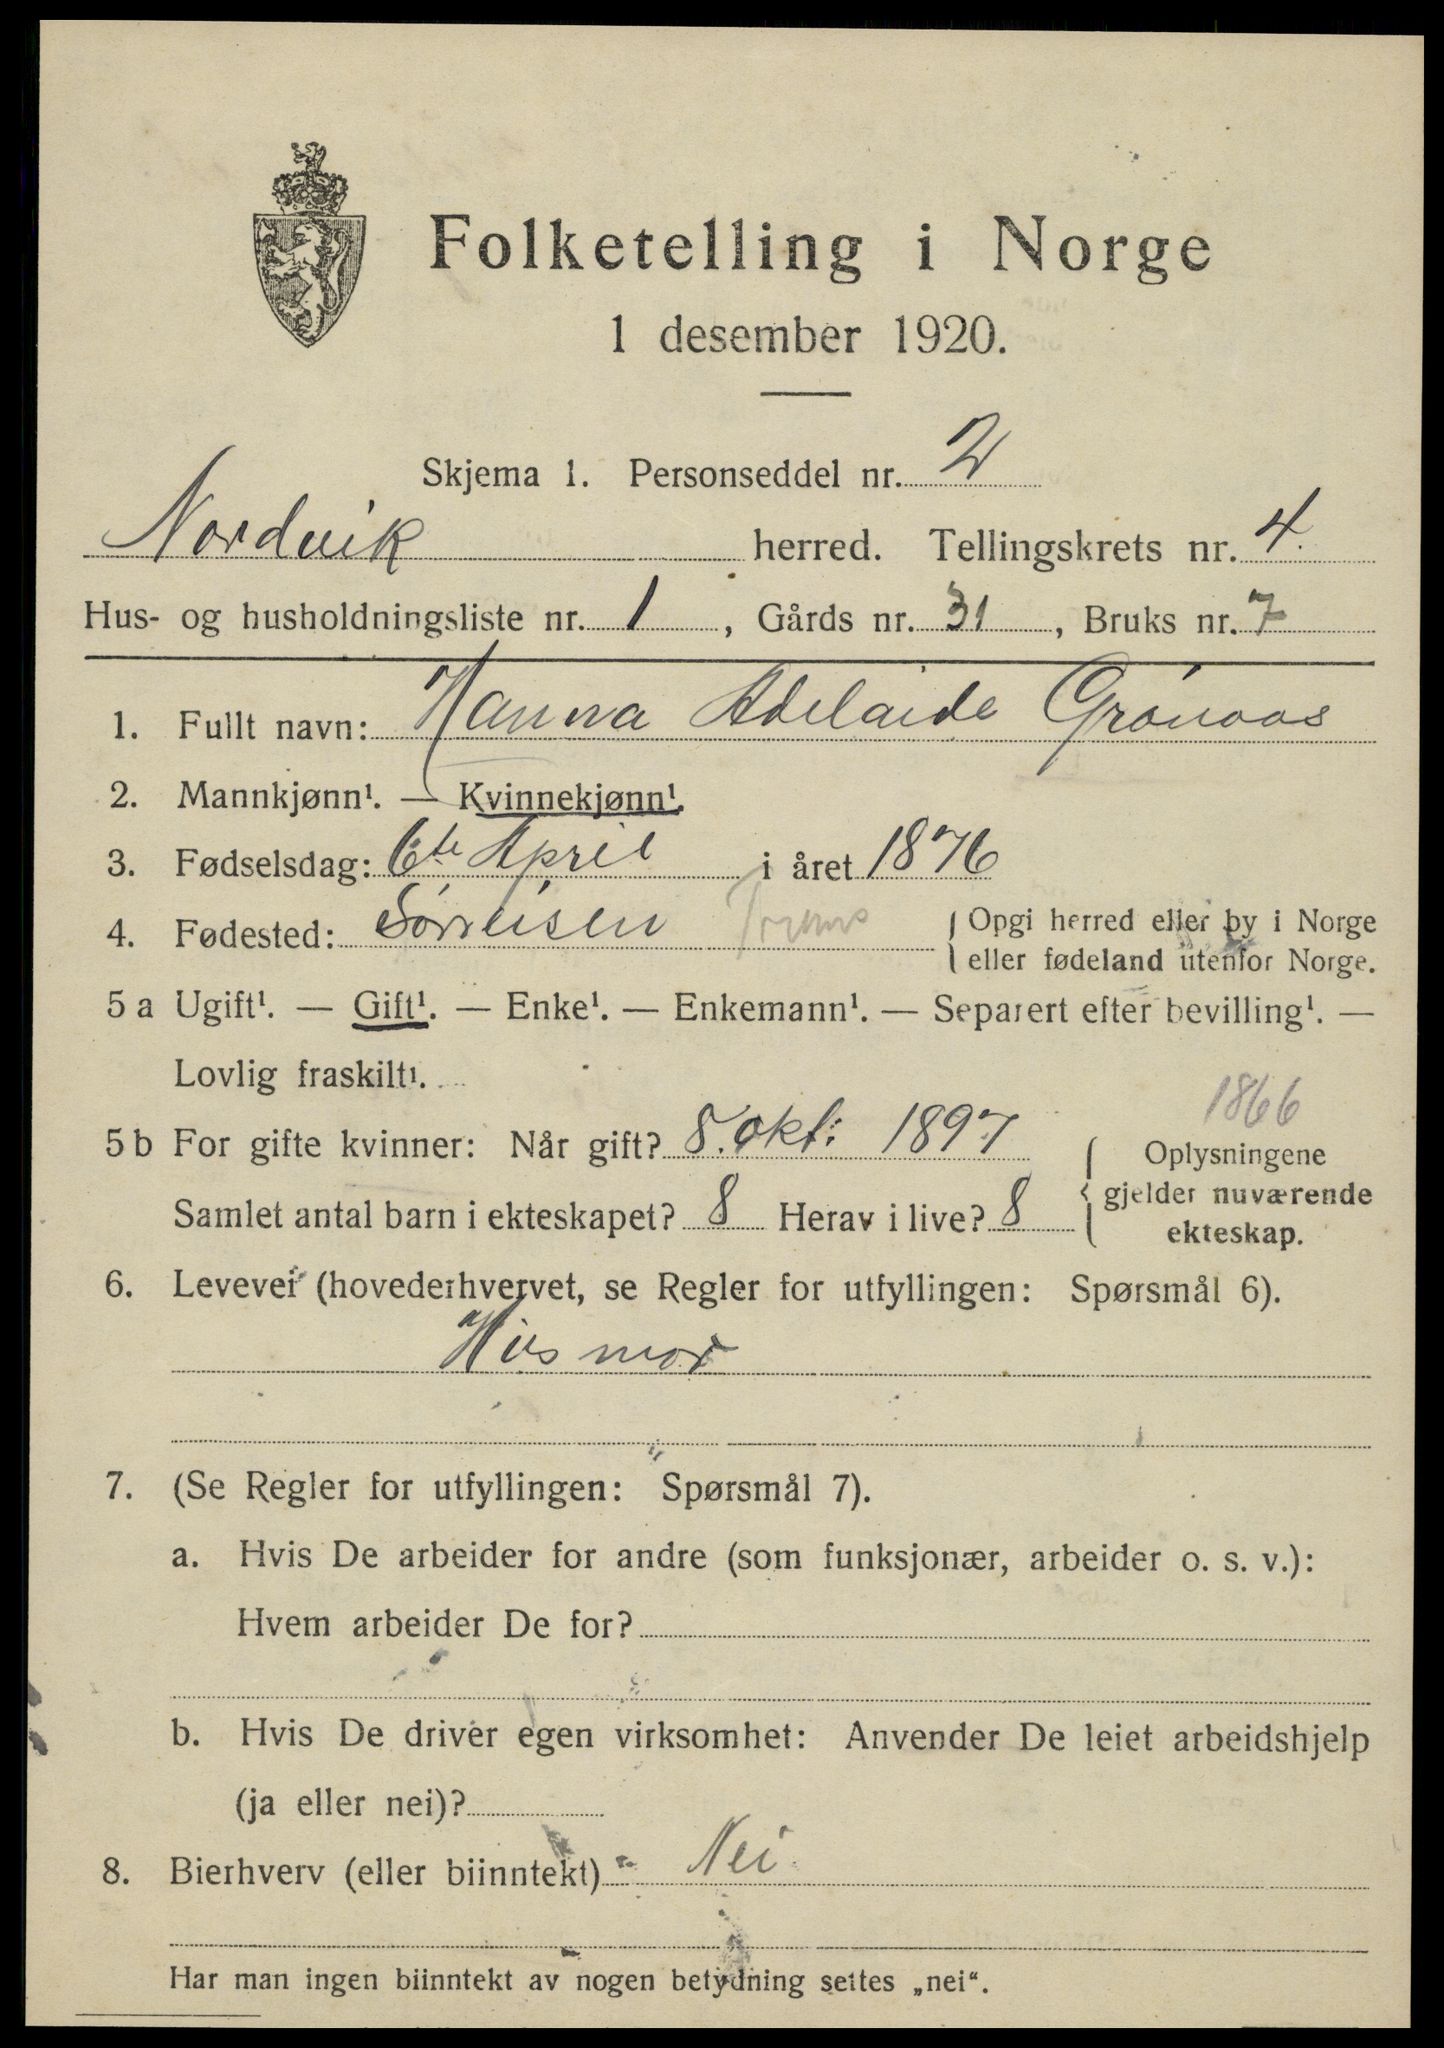 Folketelling i Norge
1 desember 1920.
Skjema 1. Personseddel nr. 2
Nordvik herred. Tellingskrets nr. 4.
Hus- og husholdningsliste nr. 1, Gårds nr. 31, Bruks nr. 7
1. Fullt navn: Hanna Adelaide Grönaas
2. Mannkjønn¹. — Kvinnekjønn¹.
3. Fødselsdag: 6te April i året 1876
4. Fødested: Sörreisen Troms { Opgi herred eller by i Norge
eller fødeland utenfor Norge.
5 a Ugift¹. — Gift¹. — Enke¹. — Enkemann¹. — Separert efter bevilling¹. —
Lovlig fraskilt¹.
1866
5 b For gifte kvinner: Når gift? 8. okt: 1897 { Oplysningene
gjelder nuværende
ekteskap.
Samlet antal barn i ekteskapet? 8 Herav i live? 8
6. Levevei (hovederhvervet, se Regler for utfyllingen: Spørsmål 6).
Husmor
7. (Se Regler for utfyllingen: Spørsmål 7).
a. Hvis De arbeider for andre (som funksjonær, arbeider o. s. v.):
Hvem arbeider De for?
b. Hvis De driver egen virksomhet: Anvender De leiet arbeidshjelp
(ja eller nei)?
8. Bierhverv (eller biinntekt) Nei
Har man ingen biinntekt av nogen betydning settes „nei“.